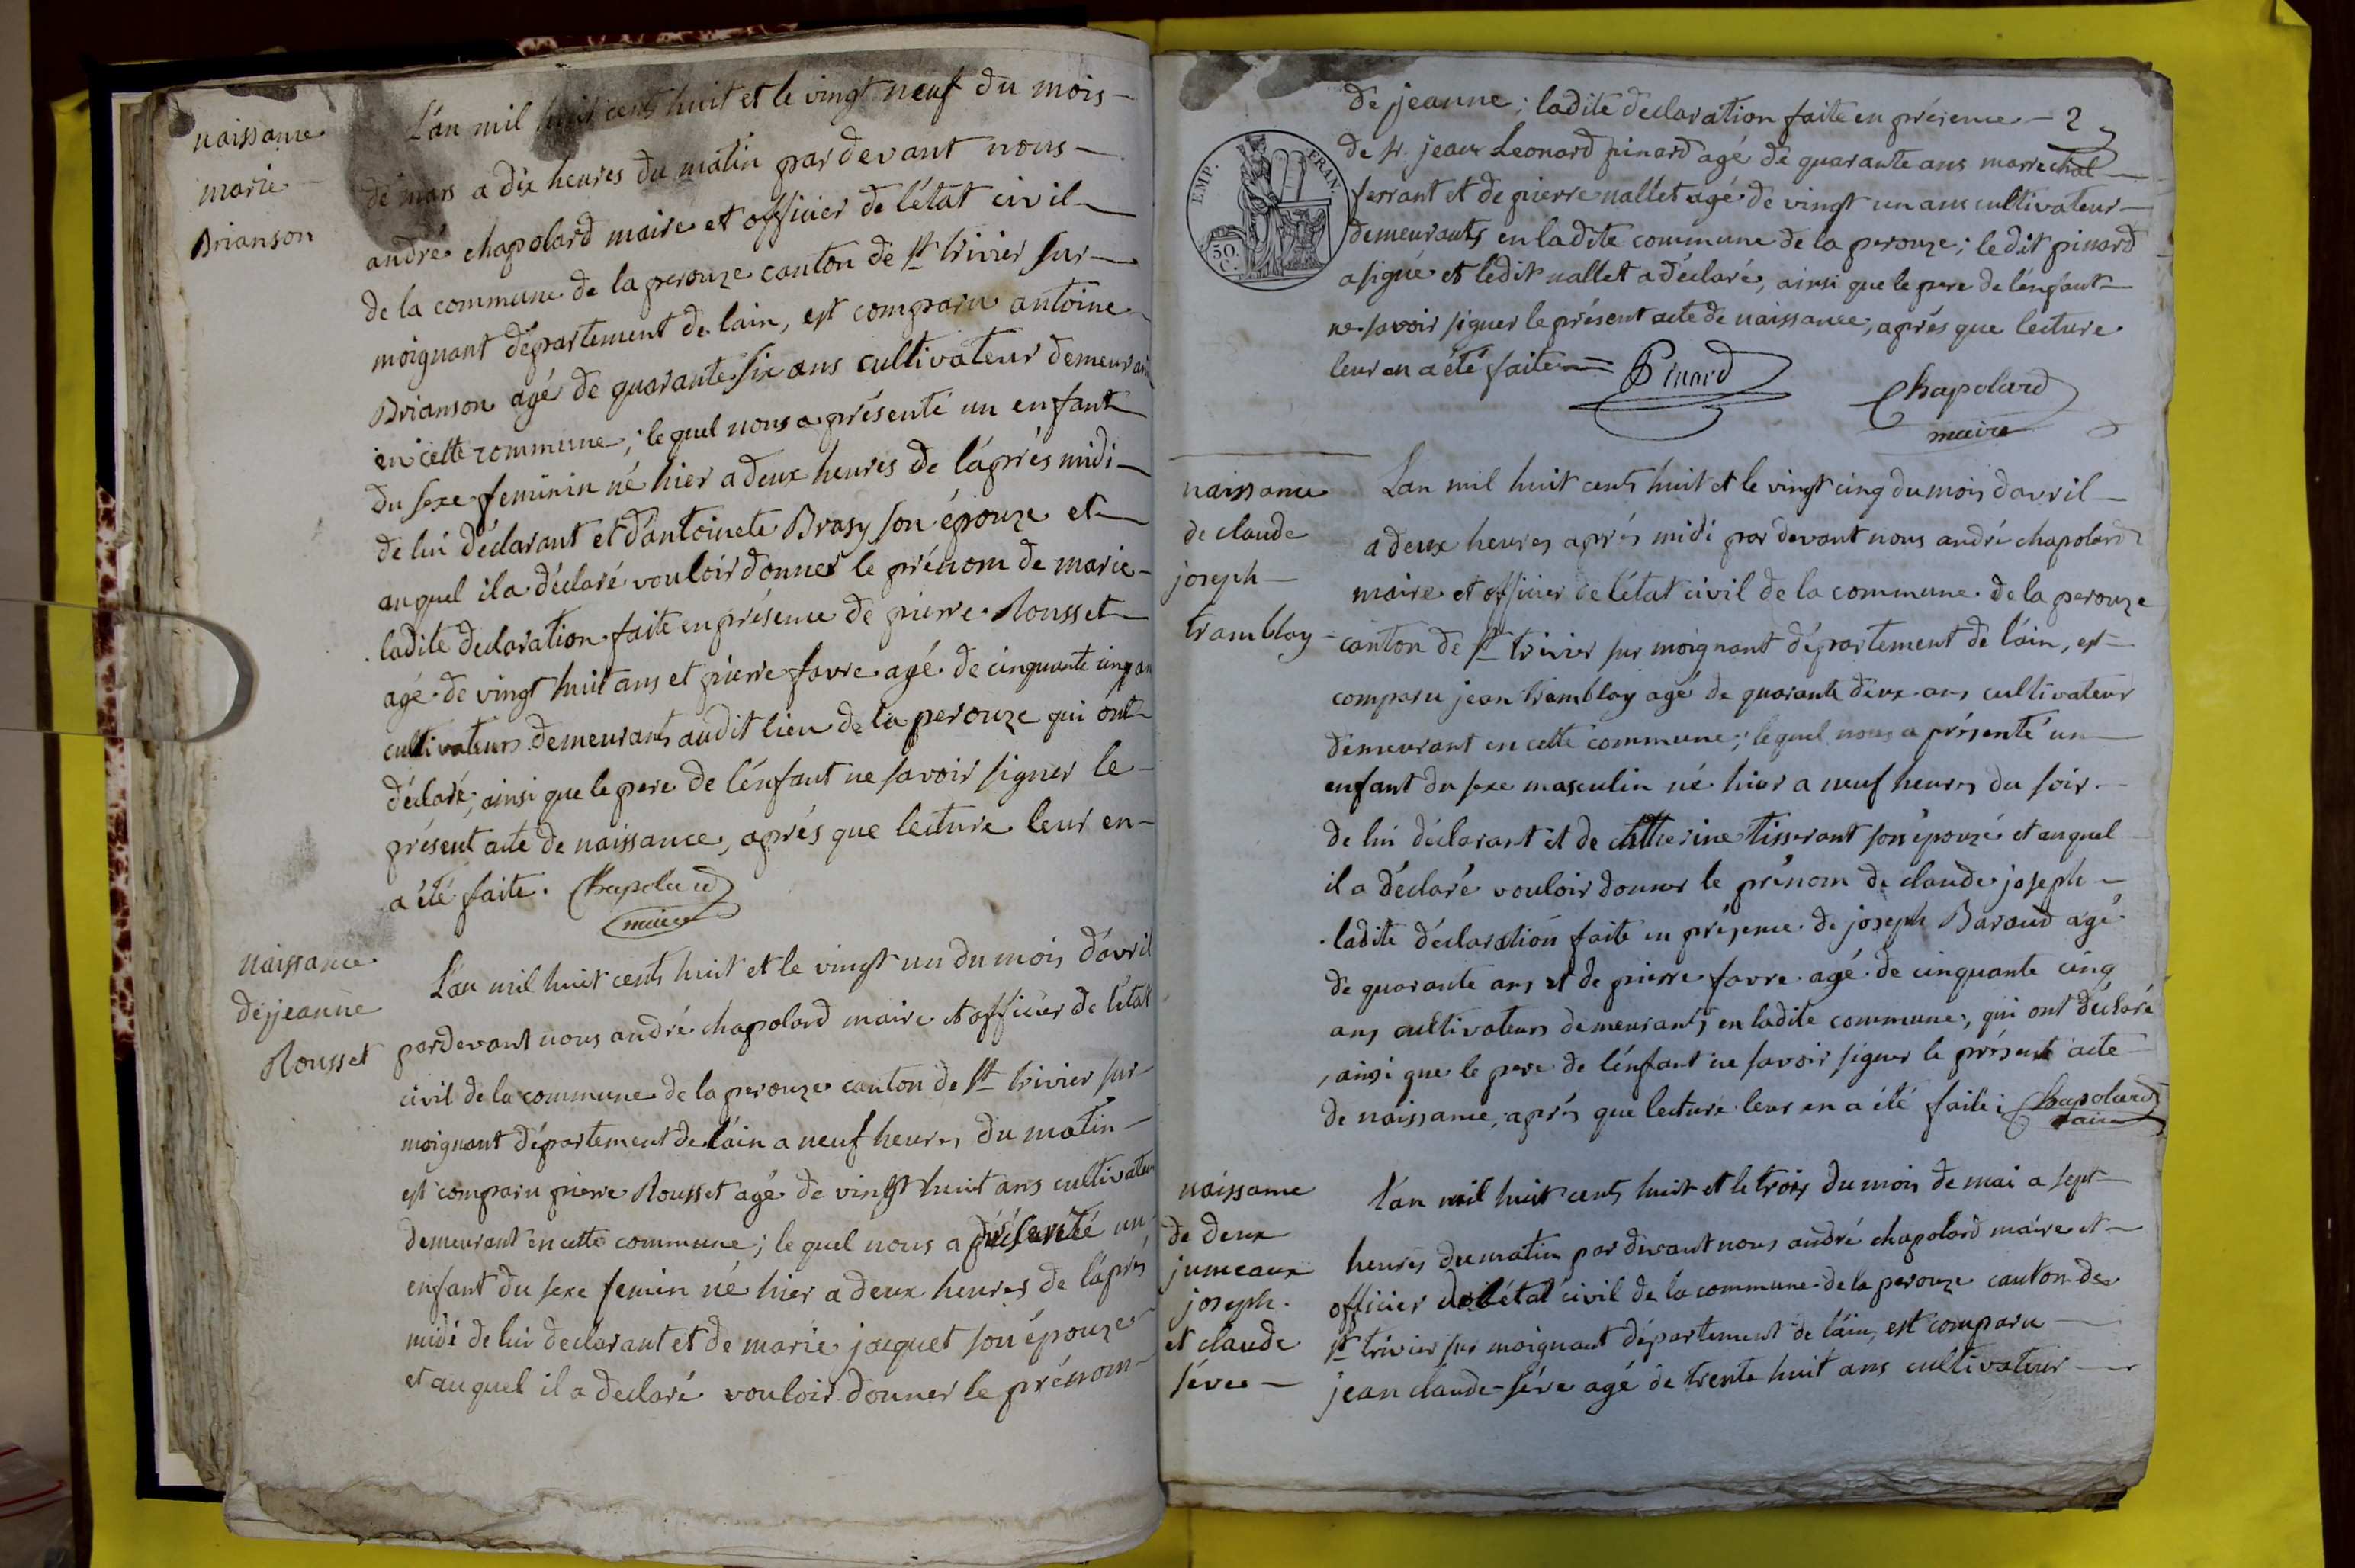 naissance
marie
Brianson
L'an mil huit cents huit et le vingt neuf du mois
de mars a dix heures du matin par devant nous
andré chapolard maire et officier de l'état civil
de la commune de la perouze canton de st trivier sur
moignant département de lain, est comparu antoine
Brianson agé de quarante six ans cultivateur demeurant
en cette commune; lequel nous a présenté un enfant
du sexe feminin né hier a deux heures de l'après midi
de lui déclarant et d'antoinete Brasy son épouze et
auquel il a déclaré vouloir donner le prénom de marie
ladite declaration faite en présence de pierre Rousset
agé de vingt huit ans et pierre favre agé de cinquante cinq ans
cultivateurs demeurants audit lieu de la perouze qui ont
déclaré, ainsi que le pere de l'énfant ne savoir signer le
présent acte de naissance, après que lecture leur en
a été faite. Chapolard
maire
naissance
de jeanne
Rousset
L'an mil huit cents huit et le vingt un du mois d'avril
pardevant nous andré chapolard maire et officier de l'état
civil de la commune de la perouze canton de st trivier sur
moignant département de l'ain a neuf heures du matin
est comparu pierre Rousset agé de vingt huit ans cultivateur
demeurant en cette commune; lequel nous a présenté un
enfant du sexe femin né hier a deux heures de l'après
midi de lui declarant et de marie jacquet son épouze
et auquel il a declaré vouloir donner le prénom
de jeanne; ladite declaration faite en présence 2
de sr. jean Leonard pinard agé de quarante ans marrechal
ferrant et de pierre nallet agé de vingt un ans cultivateur
demeurants en ladite commune de la perouze; le dit pinard
a signé et ledit nallet a déclaré, ainsi que le pere de l'énfant
ne savoir signer le présent acte de naissance, après que lecture
leur en a été faite = Pinard
Chapolard
maire
EMP. FRAN.
50.
C.
naissance
de claude
joseph
tramblay
L'an mil huit cents huit et le vingt cinq du mois davril
a deux heures après midi par devant nous andré chapolard
maire et officier de l'état civil de la commune de la perouze
canton de st trivier sur moignant département de l'ain, est
comparu jean tramblay agé de quarante deux ans cultivateur
demeurant en cette commune; lequel nous a présenté un
enfant du sexe masculin né hier a neuf heures du soir
de lui déclarant et de catherine tisserant son épouze et auquel
il a déclaré vouloir donner le prénom de claude joseph
ladite déclaration faite en présence de joseph Baraud agé
de quarante ans et de pierre favre agé de cinquante cinq
ans cultivateurs demeurants en ladite commune, qui ont déclaré
, ainsi que le pere de l'énfant ne savoir signer le présent acte
de naissance, après que lecture leur en a été faite; Chapolard
maire
naissance
de deux
jumeaux
joseph
et claude
séve
L'an mil huit cents huit et le trois du mois de mai a sept
heures du matin par devant nous andré chapolard maire et
officier de l'état civil de la commune de la perouze canton de
st trivier sur moignant département de l'ain, est comparu
jean claude séve agé de trente huit ans cultivateur